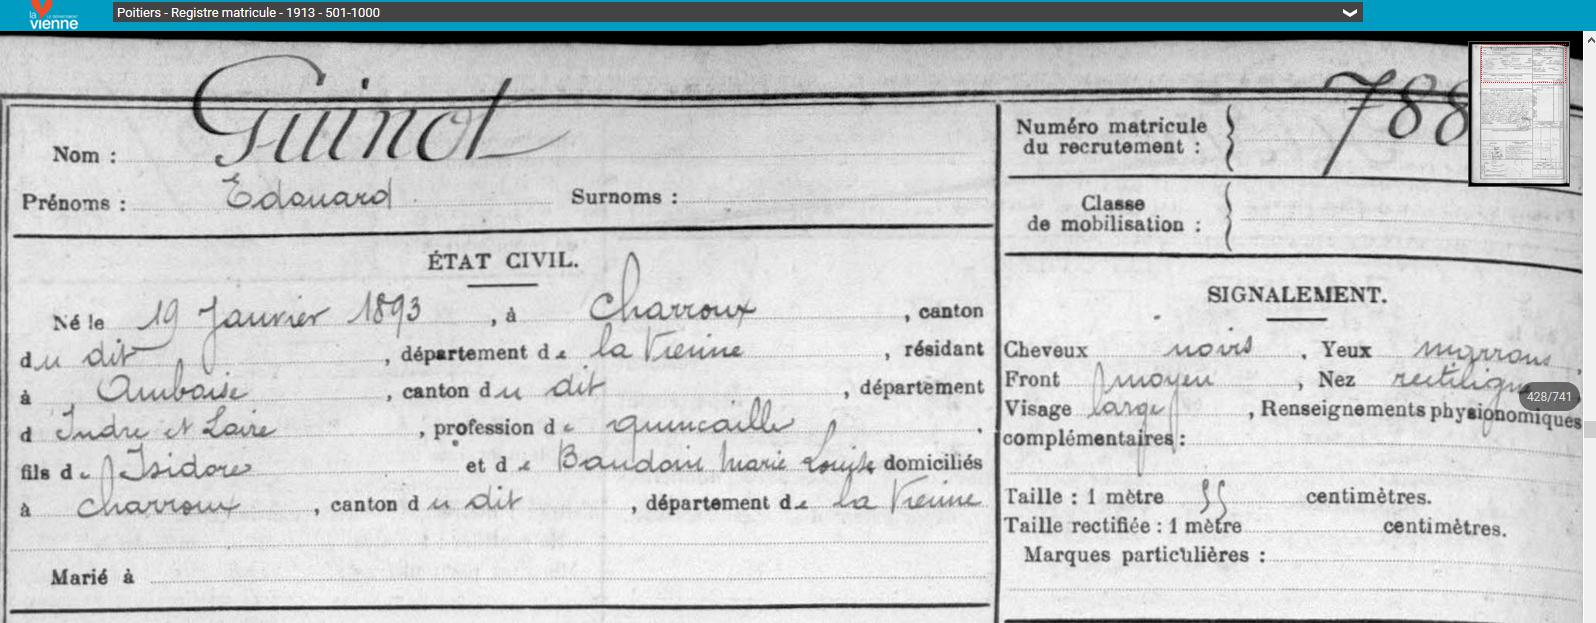 la vienne
LE DÉPARTEMENT
Poitiers - Registre matricule - 1913 - 501-1000
Nom : Guinot
Prénoms : Edouard Surnoms :
Numéro matricule du recrutement : 788
Classe de mobilisation :
ÉTAT CIVIL.
Né le 19 Janvier 1893, à Charroux, canton
du dit, département de la Vienne, résidant
à Amboise, canton du dit, département
d Indre et Loire, profession de quincaille
fils de Isidore et de Baudoin Marie Louise domiciliés
à Charroux, canton du dit, département de la Vienne
Marié à
SIGNALEMENT.
Cheveux noirs, Yeux marrons,
Front moyen, Nez rectiligne
Visage large, Renseignements physionomiques
complémentaires :
Taille : 1 mètre 55 centimètres.
Taille rectifiée : 1 mètre centimètres.
Marques particulières :
428/741